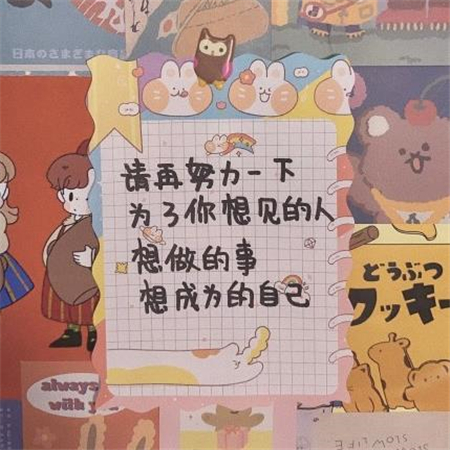 日本のさまざまな
请再努力一下
为了你想见的人
想做的事
想成为的自己
どうぶつ
クッキー
always
with
SLOW LIFE